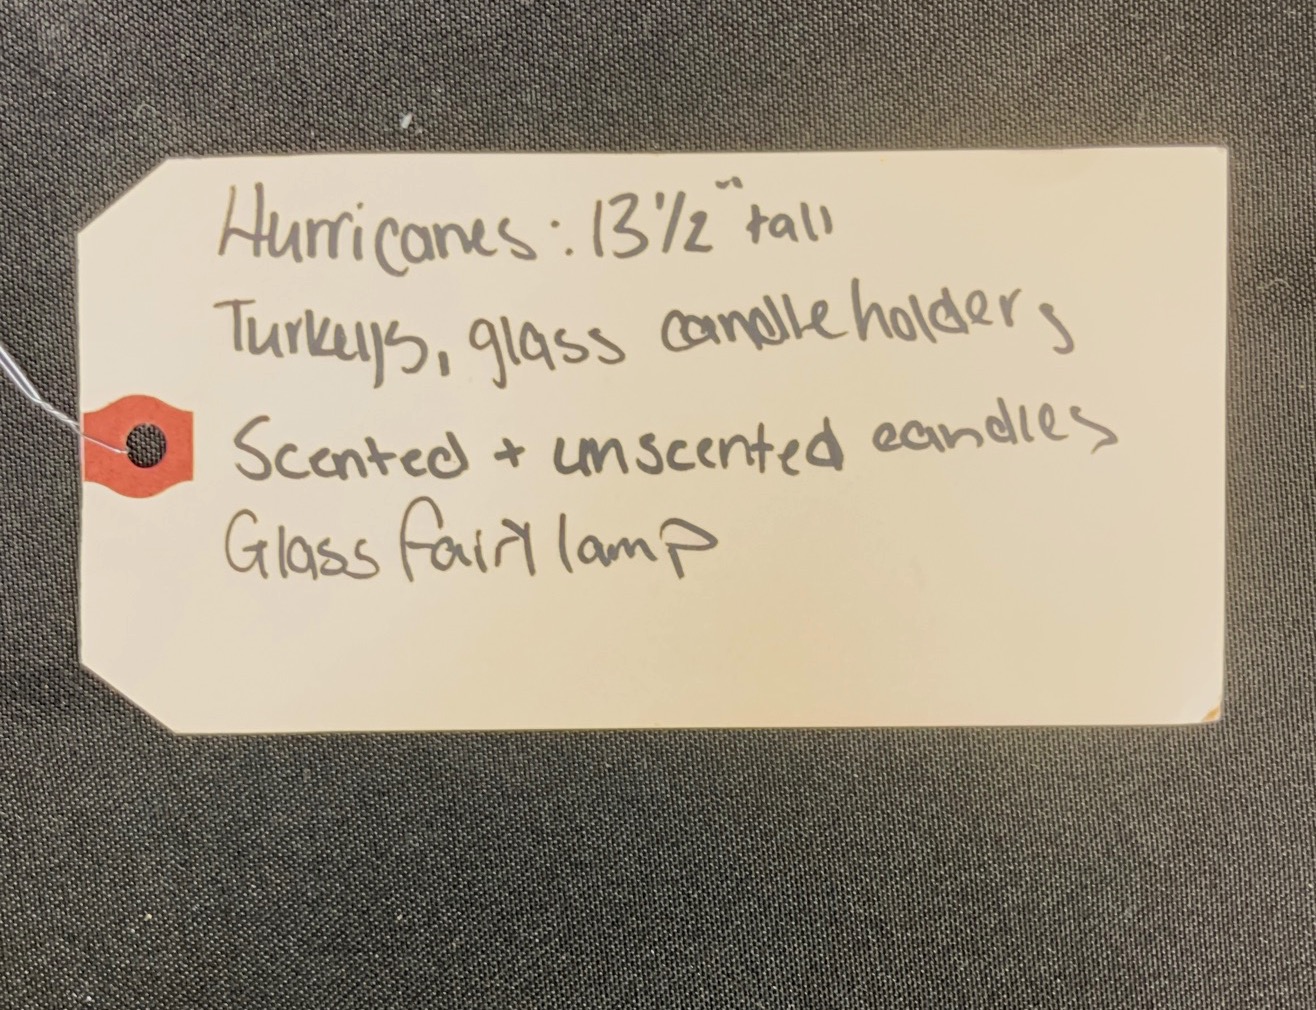 Hurricanes: 13 1/2" tall
Turkeys, glass candle holders
Scented + unscented candles
Glass fairy lamp